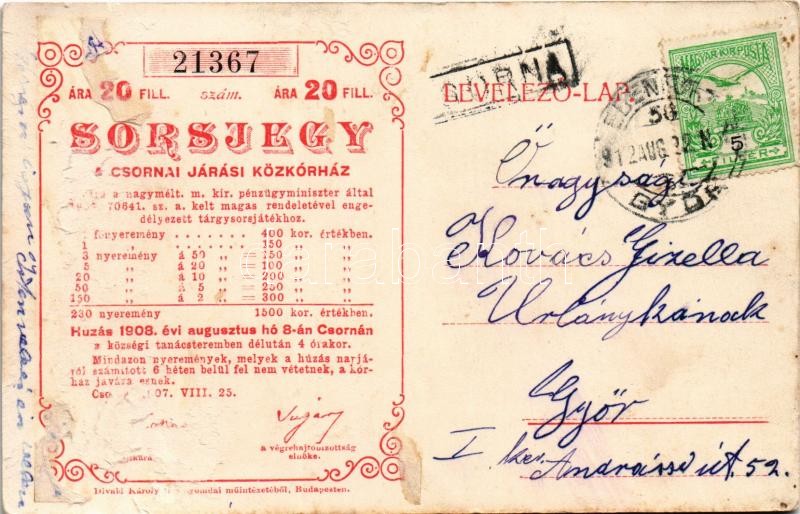 21367
ÁRA 20 FILL. szám. ÁRA 20 FILL.
SORSJEGY
a CSORNAI JÁRÁSI KÖZKÓRHÁZ
a nagymélt. m. kir. pénzügyminiszter által
70641. sz. a. kelt magas rendeletével enge-
délyezett tárgysorsjátékhoz.
1 főnyeremény 400 kor. értékben.
1 „ 150 „ „
3 nyeremény á 50 „ = 150 „ „
5 „ á 20 „ = 100 „ „
20 „ á 10 „ = 200 „ „
50 „ á 5 „ = 250 „ „
150 „ á 2 „ = 300 „ „
230 nyeremény 1500 kor. értékben.
Huzás 1908. évi augusztus hó 8-án Csornán
a községi tanácsteremben délután 4 órakor.
Mindazon nyeremények, melyek a húzás napjá-
ról számított 6 héten belül fel nem vétetnek, a kór-
ház javára esnek.
07. VIII. 25.
a végrehajtóbizottság
elnöke.
Divald Károly műintézetéből, Budapesten.
LEVELEZŐ-LAP
MAGYAR KIR. POSTA
5
FILLÉR
912 AUG
GYŐR
Őnagysága
Kovács Gizella
Urlánykának
Győr
I ker.
Andrássi út. 52.
darabanth